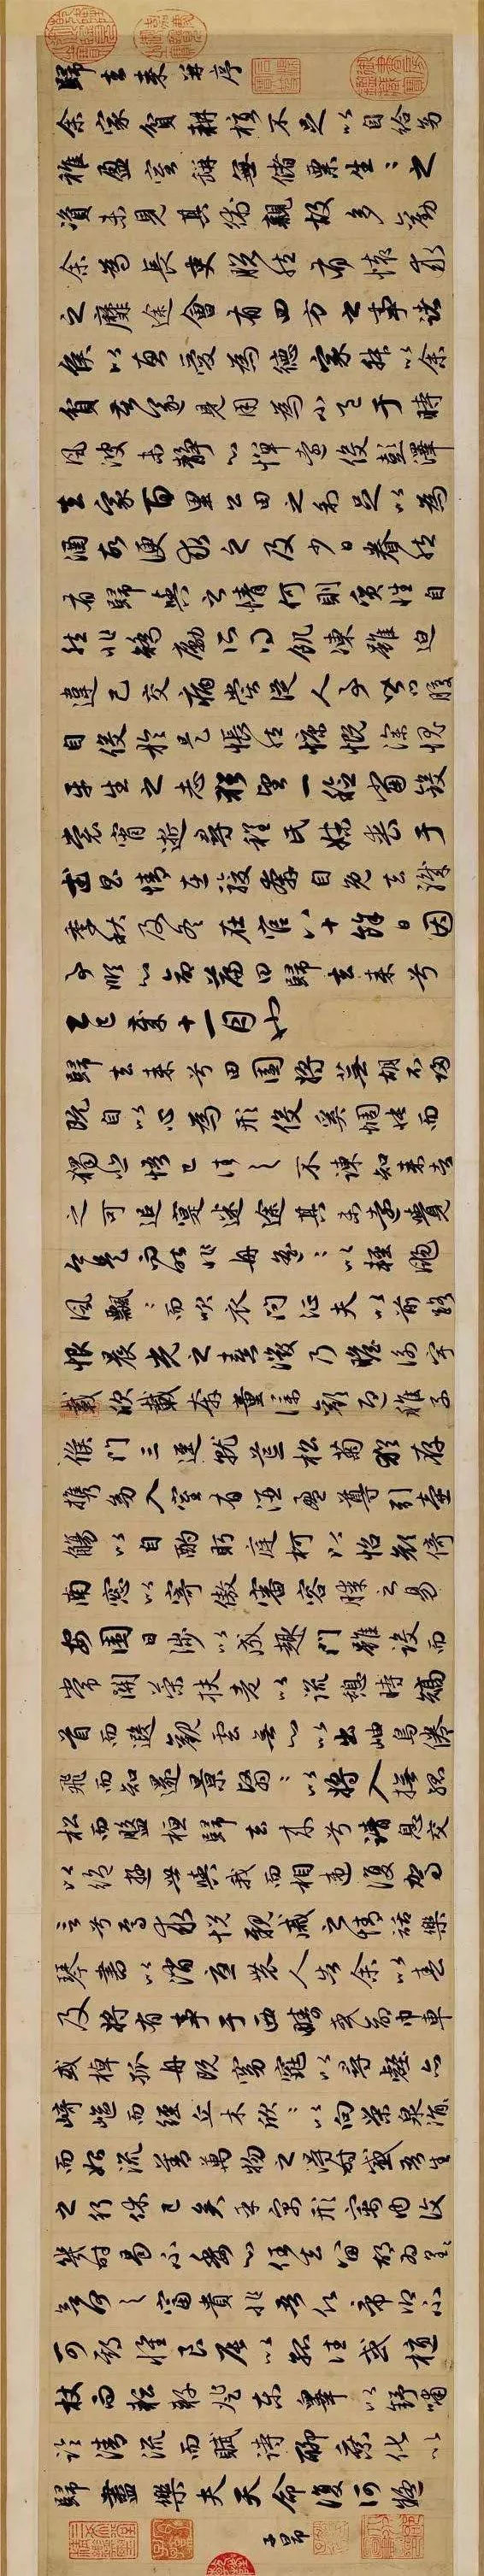 歸去来并序
余家貧耕植不足以自給幼
稚盈室缾無儲粟生〻之
資未見其術親故多勸
余為長吏脫然有懷求
之靡途會有四方之事諸
侯以惠愛為德家叔以余
貧苦遂見用為小邑于時
風波未静心憚遠役彭澤
去家百里公田之利足以為
酒故便求之及少日眷然
有歸與之情何則質性自
然非矯勵所得飢凍雖迫
違己交病嘗從人事皆口腹
自役於是悵然慷慨深愧
平生之志猶望一稔當斂
裳宵逝尋程氏妹喪于
武昌情在駿奔自免去職
季秋及冬在官八十餘日因
事順心命篇曰歸去来兮
乙巳歲十一月也
歸去来兮田園將蕪胡不歸
既自以心為形役奚惆悵而
獨悲悟已往之不諫知来者
之可追寔迷途其未遠覺
今是而昨非舟遥〻以輕颺
風飄〻而吹衣問征夫以前路
恨晨光之熹微乃瞻衡宇
載欣載奔僮僕歡迎稚子
候門三逕就荒松菊猶存
携幼入室有酒盈尊引壺
觴以自酌眄庭柯以怡顏倚
南窓以寄傲審容膝之易
安園日涉以成趣門雖設而
常關策扶老以流憩時矯
首而遐觀雲無心以出岫鳥倦
飛而知還景翳〻以將入撫孤
松而盤桓歸去来兮請息交
以絕遊世與我而相違復駕
言兮焉求悅親戚之情話樂
琴書以消憂農人告余以春
及將有事于西疇或命巾車
或棹孤舟既窈窕以尋壑亦
崎嶇而經丘木欣〻以向榮泉涓〻
而始流善萬物之得時感吾生
之行休已矣乎寓形宇内復
幾時曷不委心任去留胡為遑〻
兮何之富貴非吾願帝鄉不
可期懷良辰以孤往或植
杖而耘耔登東皋以舒嘯
臨清流而賦詩聊乘化以
歸盡樂夫天命復何疑
子昂